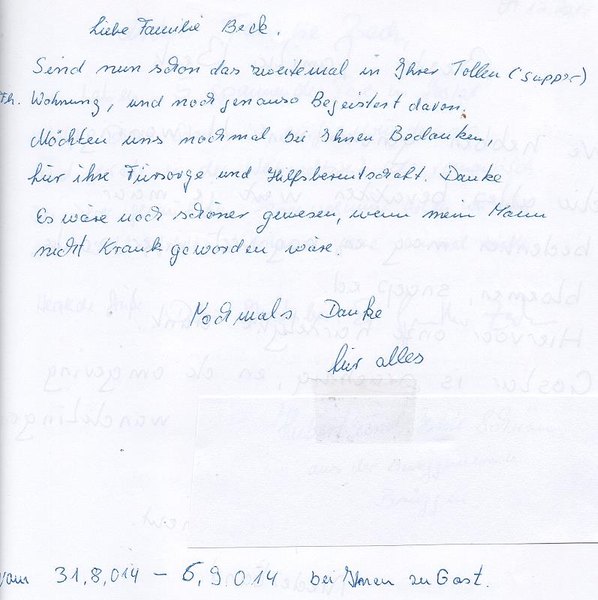 Liebe Familie Beck.
Sind nun schon das zweitemal in Ihrer Tollen (suppor)
Fh. Wohnung, und noch genauso Begeistert davon.
Möchten uns nochmal bei Ihnen Bedanken,
für ihre Fürsorge und Hilfsbereitschaft. Danke
Es wäre noch schöner gewesen, wenn mein Mann
nicht Krank geworden wäre.
Nochmals Danke
für alles
vom 31,8,014 – 6,9,014 bei Ihnen zu Gast.